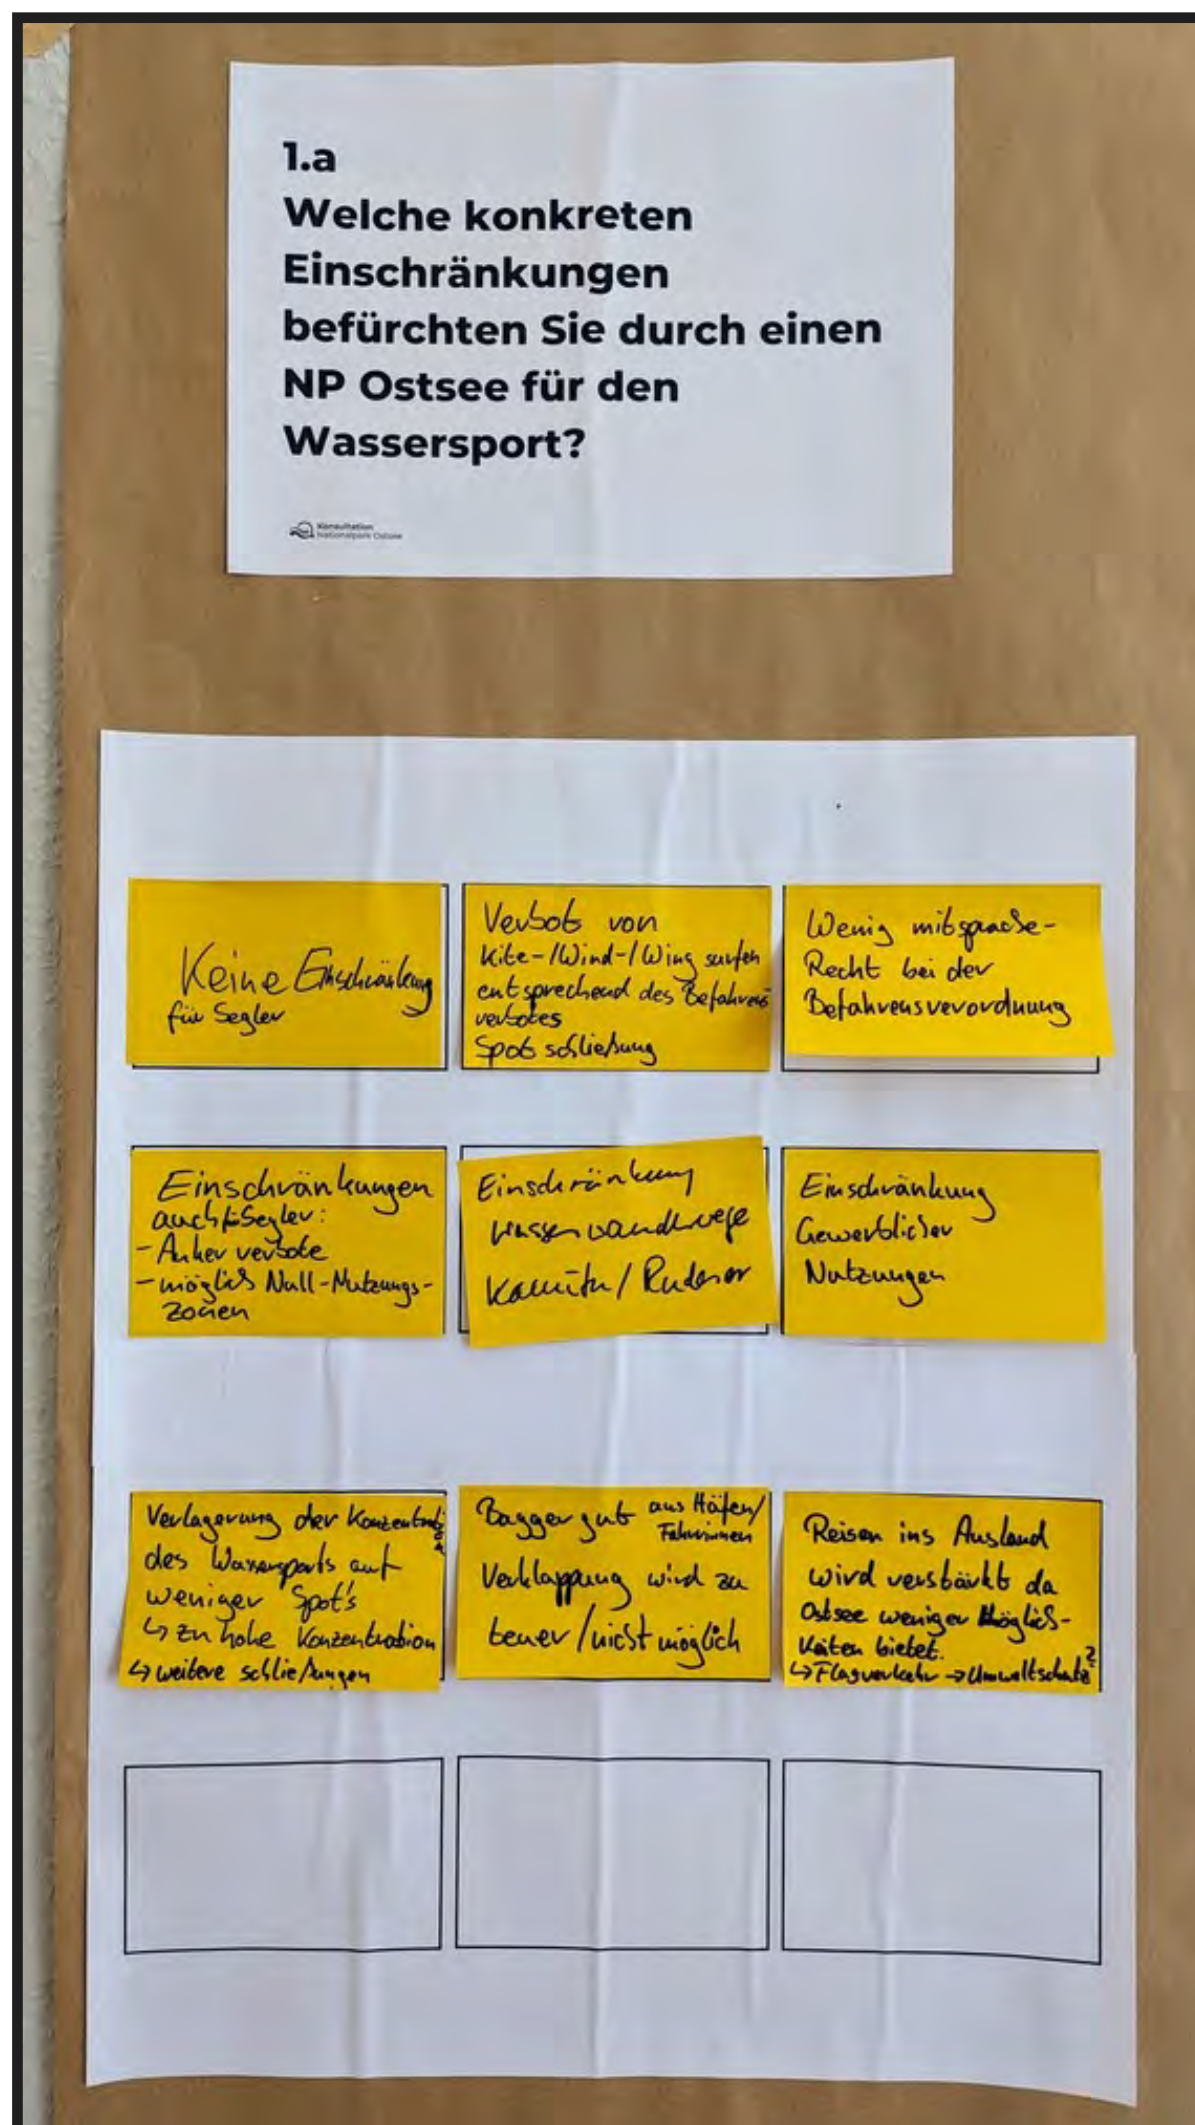 1.a
Welche konkreten
Einschränkungen
befürchten Sie durch einen
NP Ostsee für den
Wassersport?
Konsultation
Nationalpark Ostsee
Keine Einschränkung
für Segler
Verbot von
Kite-/Wind-/Wing surfen
entsprechend des Befahrens
verbotes
Spot schließung
Wenig mitsprache-
Recht bei der
Befahrensverordnung
Einschränkungen
auch für Segler:
- Anker verbote
- möglich Null-Nutzungs-
zonen
Einschränkung
Wasserwanderwege
Kanuten / Ruderer
Einschränkung
Gewerblicher
Nutzungen
Verlagerung der Konzentration
des Wassersports auf
weniger Spot's
↳ zu hohe Konzentration
↳ weitere schließungen
Baggergut aus Häfen/
Fahrrinnen
Verklappung wird zu
teuer / nicht möglich
Reisen ins Ausland
wird verstärkt da
Ostsee weniger Möglich-
keiten bietet.
↳ Flugverkehr → Umweltschutz?